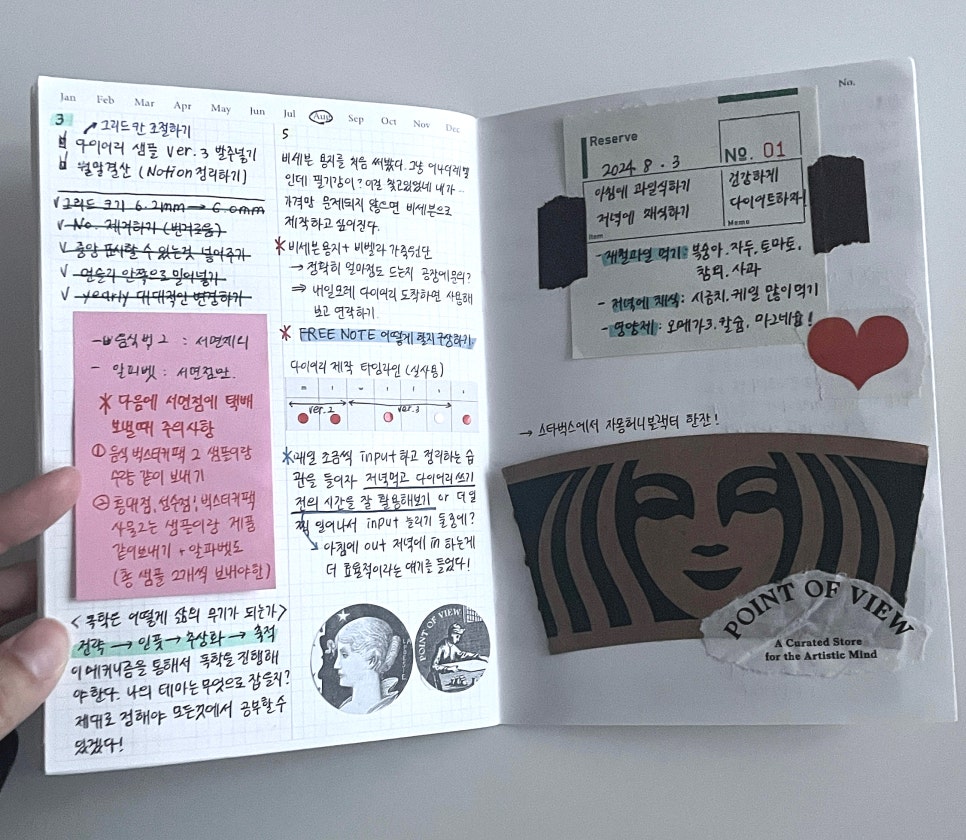 Jan Feb Mar Apr May Jun Jul Aug Sep Oct Nov Dec
3
그리드칸 조절하기
다이어리 샘플 ver.3 발주넣기
월말결산 (Notion 정리하기)
그리드 크기 6.2mm → 6.0mm
No. 제거하기 (번거로움)
중앙 표시할 수 있는것 넣어주기
먼슬리 안쪽으로 밀어넣기
yearly 대대적인 변경하기
음식벅2 : 서면제니
- 알파벳 : 서면점만.
다음에 서면점에 택배
보낼때 주의사항
① 음식 벅스티커팩 2 샘플이랑
수량 같이 보내기
② 홍대점, 성수점, 벅스티커팩
사물2는 샘플이랑 제품
같이보내기 + 알파벳도
(총 샘플 2개씩 보내야함)
<독학은 어떻게 삶의 무기가 되는가>
전략 → 인풋 → 추상화 → 축적
이 메커니즘을 통해서 독학을 진행해
야한다. 나의 테마는 무엇으로 잡을지?
제대로 정해야 모든것에서 공부할수
있겠다!
5
비세븐 용지를 처음 써봤다. 그냥
인데 필기감이? 이걸 찾고있었네 내가...
가격만 문제되지 않으면 비세븐으로
제작하고 싶어진다.
비세븐용지 + 비벨라 가죽원단
→ 정확히 얼마정도 드는지 공장에문의?
⇒ 내일모레 다이어리 도착하면 사용해
보고 연락하기.
FREE NOTE 어떻게 할지 구상하기.
다이어리 제작 타임라인 (실사용)
ver.2 ver.3
매일 조금씩 input하고 정리하는 습
관을 들이자 저녁먹고 다이어리쓰기
전의 시간을 잘 활용해보기 or 더 일
찍 일어나서 input 늘리기 둘중에?
아침에 out 저녁에 in 하는게
더 효율적이라는 얘기를 들었다!
POINT OF VIEW
No.
Reserve
2024. 8. 3
No. 01
아침에 과일식하기
저녁에 채식하기
Item
건강하게
다이어트하자!
Memo
- 제철과일 먹기: 복숭아, 자두, 토마토,
참외, 사과
- 저녁에 채식: 시금치, 케일 많이먹기
- 영양제: 오메가3, 칼슘, 마그네슘!
→ 스타벅스에서 자몽허니블랙티 한잔!
POINT OF VIEW
A Curated Store
for the Artistic Mind